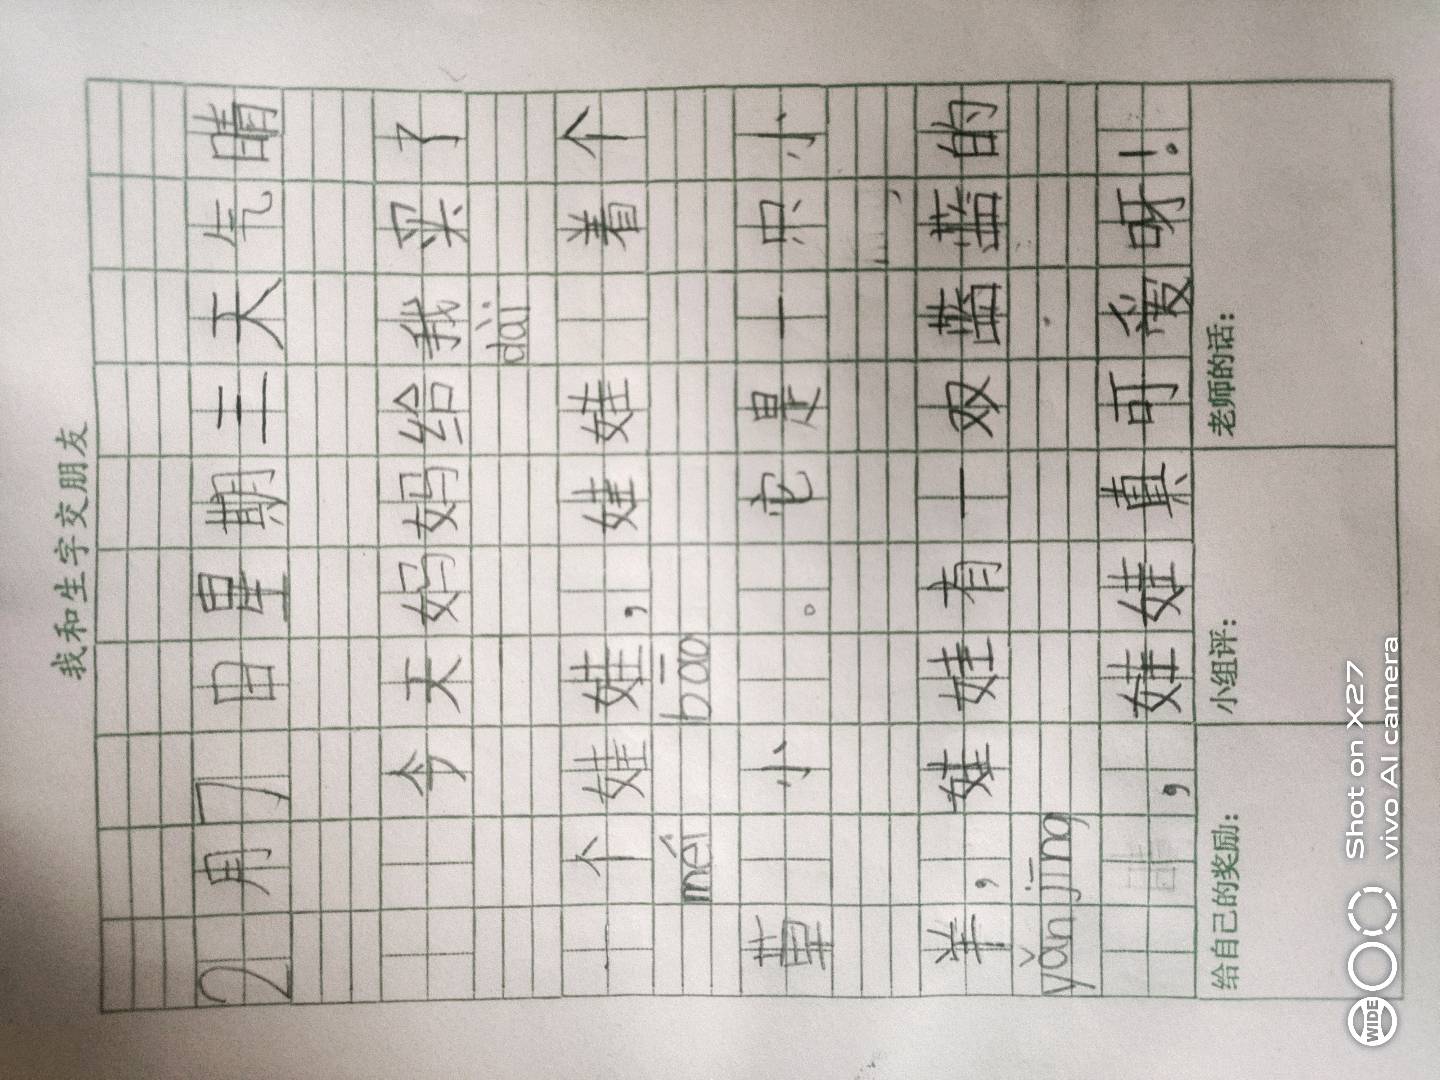 我和生字交朋友
2月7日星期三天气晴
今天妈妈给我采了
dài
一个娃娃，娃娃 着个
méi bāo
草 小 。它是一只小
羊，娃娃有一双蓝蓝的
yǎn jīng
，娃娃真可爱呀！
给自己的奖励： 小组评： 老师的话：
WIDE
Shot on X27
vivo AI camera